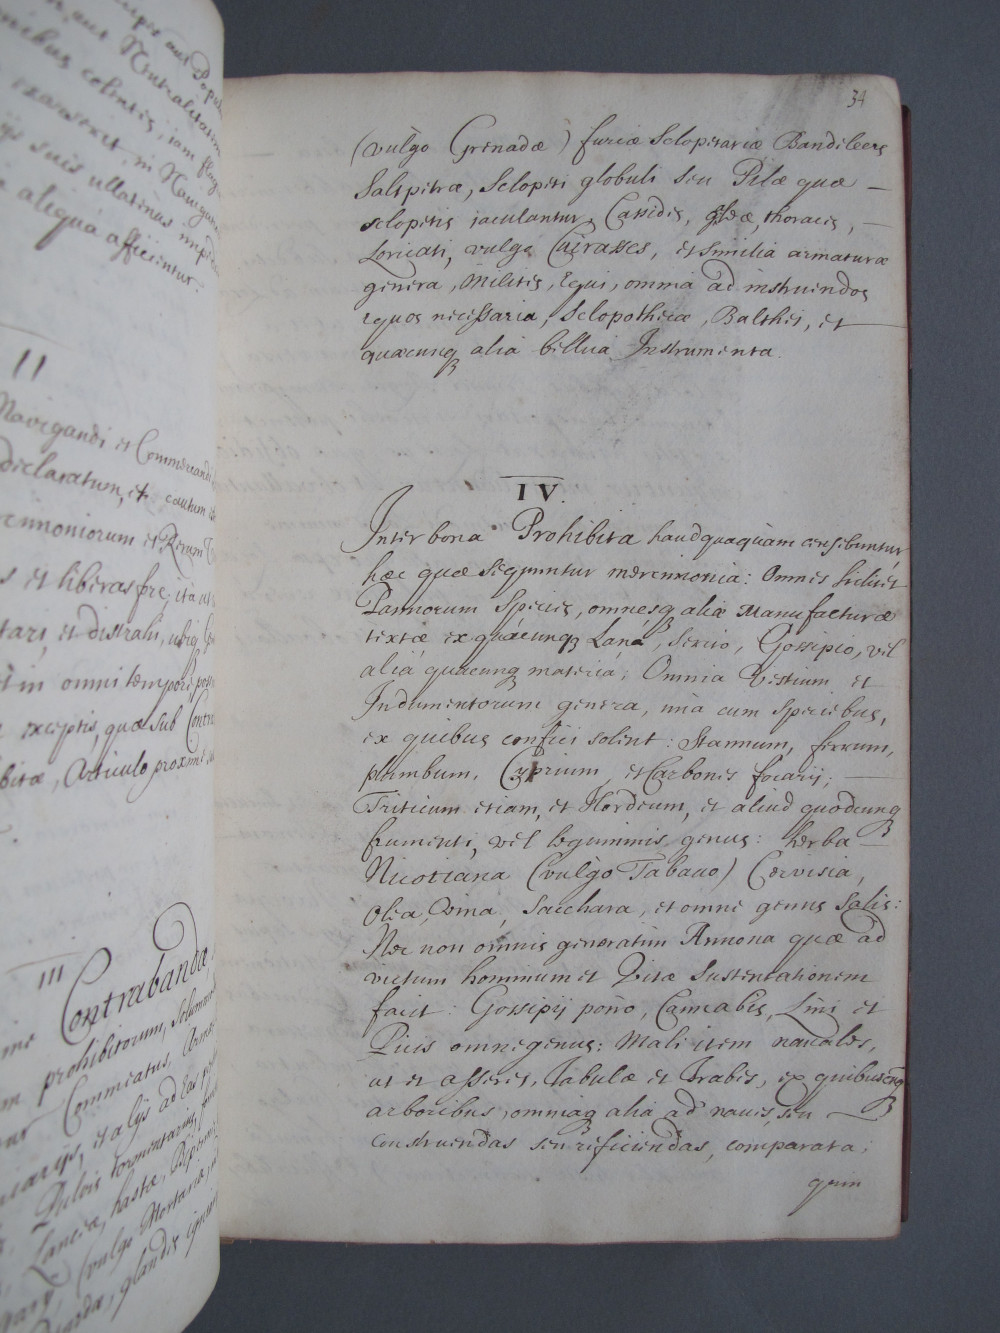 cipis aut Popul
m, aut Neutralitatem
onibus colentis, iam
exarserit, in Navigatio
ijs suis ullatinus impedi
aliqua afficientur.
II
Navigandi et Commerciandi
declaratum, et cautum
Mercimoniorum et Rerum
s et liberas fore, ita ut
tari, et distrahi, ubiq
et in omni tempore, poss
exceptis, quæ sub Contra
bitæ, Articulo proxime
III
Contrabandæ
m prohibitorum, solummodo
Commeatus, Arma
iarijs, et alijs ad Eas
Pulvis tormentarius,
Lanceæ, hastæ, Bipennes
(vulgo Mortaria,
glandes igniar
34
(vulgo Grenadæ) furcæ Sclopetariæ Bandileers
Saltpetræ, Sclopeti globuli seu Pilæ quæ —
sclopetis jaculantur, Cassides, galeæ, thoraces, —
Loricati, vulgo Cuirasses, et similia armaturæ
genera, Milites, Equi, omnia ad instruendos
equos necessaria, Sclopothecæ, Balthei, et —
quæcunq alia bellica Instrumenta.
IV.
Inter bona Prohibita haudquaquàm censebuntur
hæc quæ sequuntur mercimonia: Omnes scilicet
Pannorum Species, omnesq aliæ Manufacturæ
textæ ex quâcunq Lanâ, Serico, Gossipio, vel
aliâ quacunq materia; Omnia Vestium et
Indumentorum genera, unà cum Speciebus,
ex quibus confici solent: Stannum, ferrum,
plumbum, Cyprium, et Carbones focarij; —
Triticum etiam, et Hordeum, et aliud quodcunq
frumenti, vel leguminis genus: herba —
Nicotiana (vulgò Tabacco) Cervisia,
Olea, Vina, Sacchara, et omne genus Salis:
Nec non omnis generatim Annona quæ ad
victum hominum et Vitæ Sustentationem
facit: Gossipij porro, Cannabis, Lini et
Picis omne genus: Mali item navales,
ut et asseres, Tabulæ et Trabes, ex quibuscunq
arboribus, omniaq alia ad naves, seu —
construendas seu reficiendas, comparata;
quin